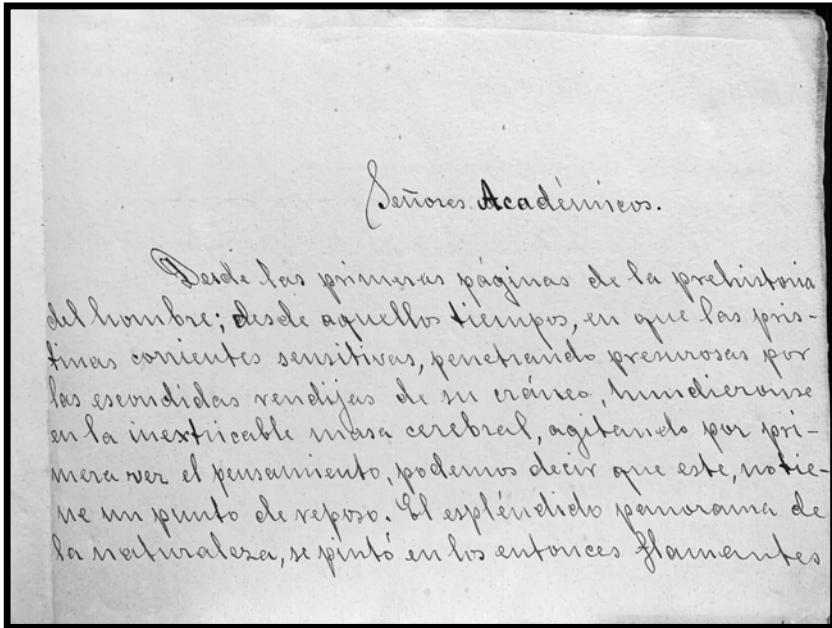 Señores Académicos.
Desde las primeras páginas de la prehistoria
del hombre; desde aquellos tiempos, en que las pris-
tinas corrientes sensitivas, penetrando presurosas por
las escondidas rendijas de su cráneo, hundieronse
en la inextricable masa cerebral, agitando por pri-
mera vez el pensamiento, podemos decir que este, no tie-
ne un punto de reposo. El espléndido panorama de
la naturaleza, se pintó en los entonces flamantes